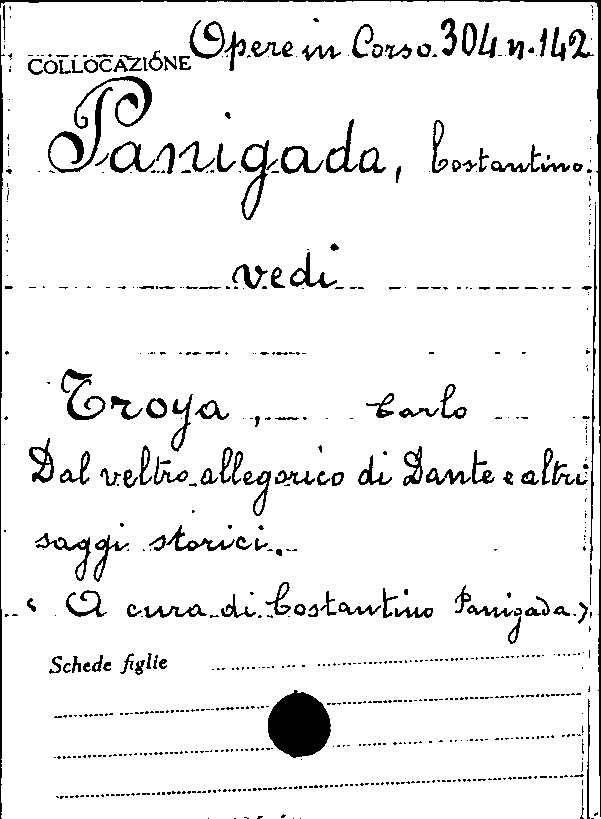 COLLOCAZIONE Opere in Corso 304 n. 142
Panigada, Costantino
vedi
Troya, Carlo
Dal veltro allegorico di Dante e altri
saggi storici.
< A cura di Costantino Panigada >
Schede figlie